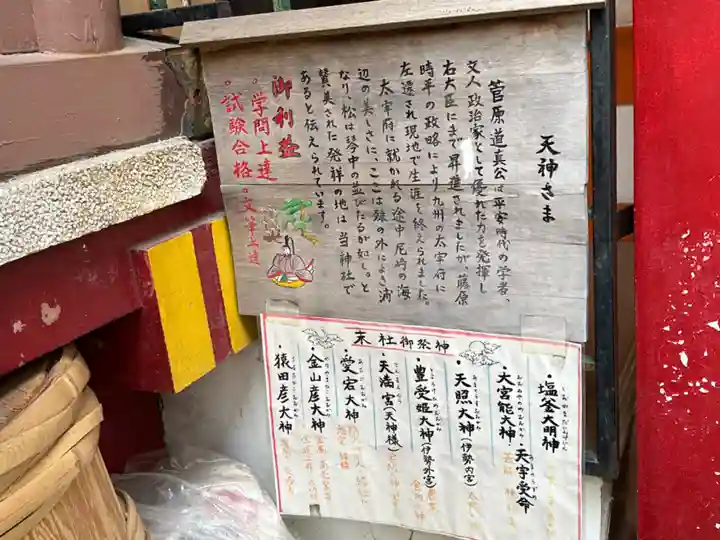 天神さま
菅原道真公は平安時代の学者、
文人政治家として優れた力を発揮し
右大臣にまで昇進されましたが、藤原
時平の政略により九州の太宰府に
左遷され現地で生涯を終えられました。
太宰府に就かれる途中尼崎の海
辺の美しさに、ここは須の外によき浦
なり、松は琴中の並びたるが如し。と
賛美された発祥の地は当神社で
あると伝えられています。
御利益
。学問上達
。試験合格。文筆上達
末社御祭神
・塩釜大明神
・天宇受命
・大宮能大神
・天照大神(伊勢内宮)
・豊受姫大神(伊勢外宮)
・天満宮(天神様)
・愛宕大神
・金山彦大神
・猿田彦大神